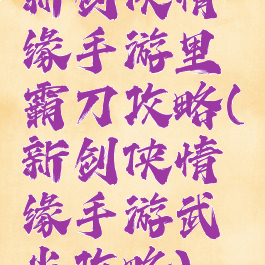 新剑侠情
缘手游里
霸刀攻略(
新剑侠情
缘手游武
当攻略)